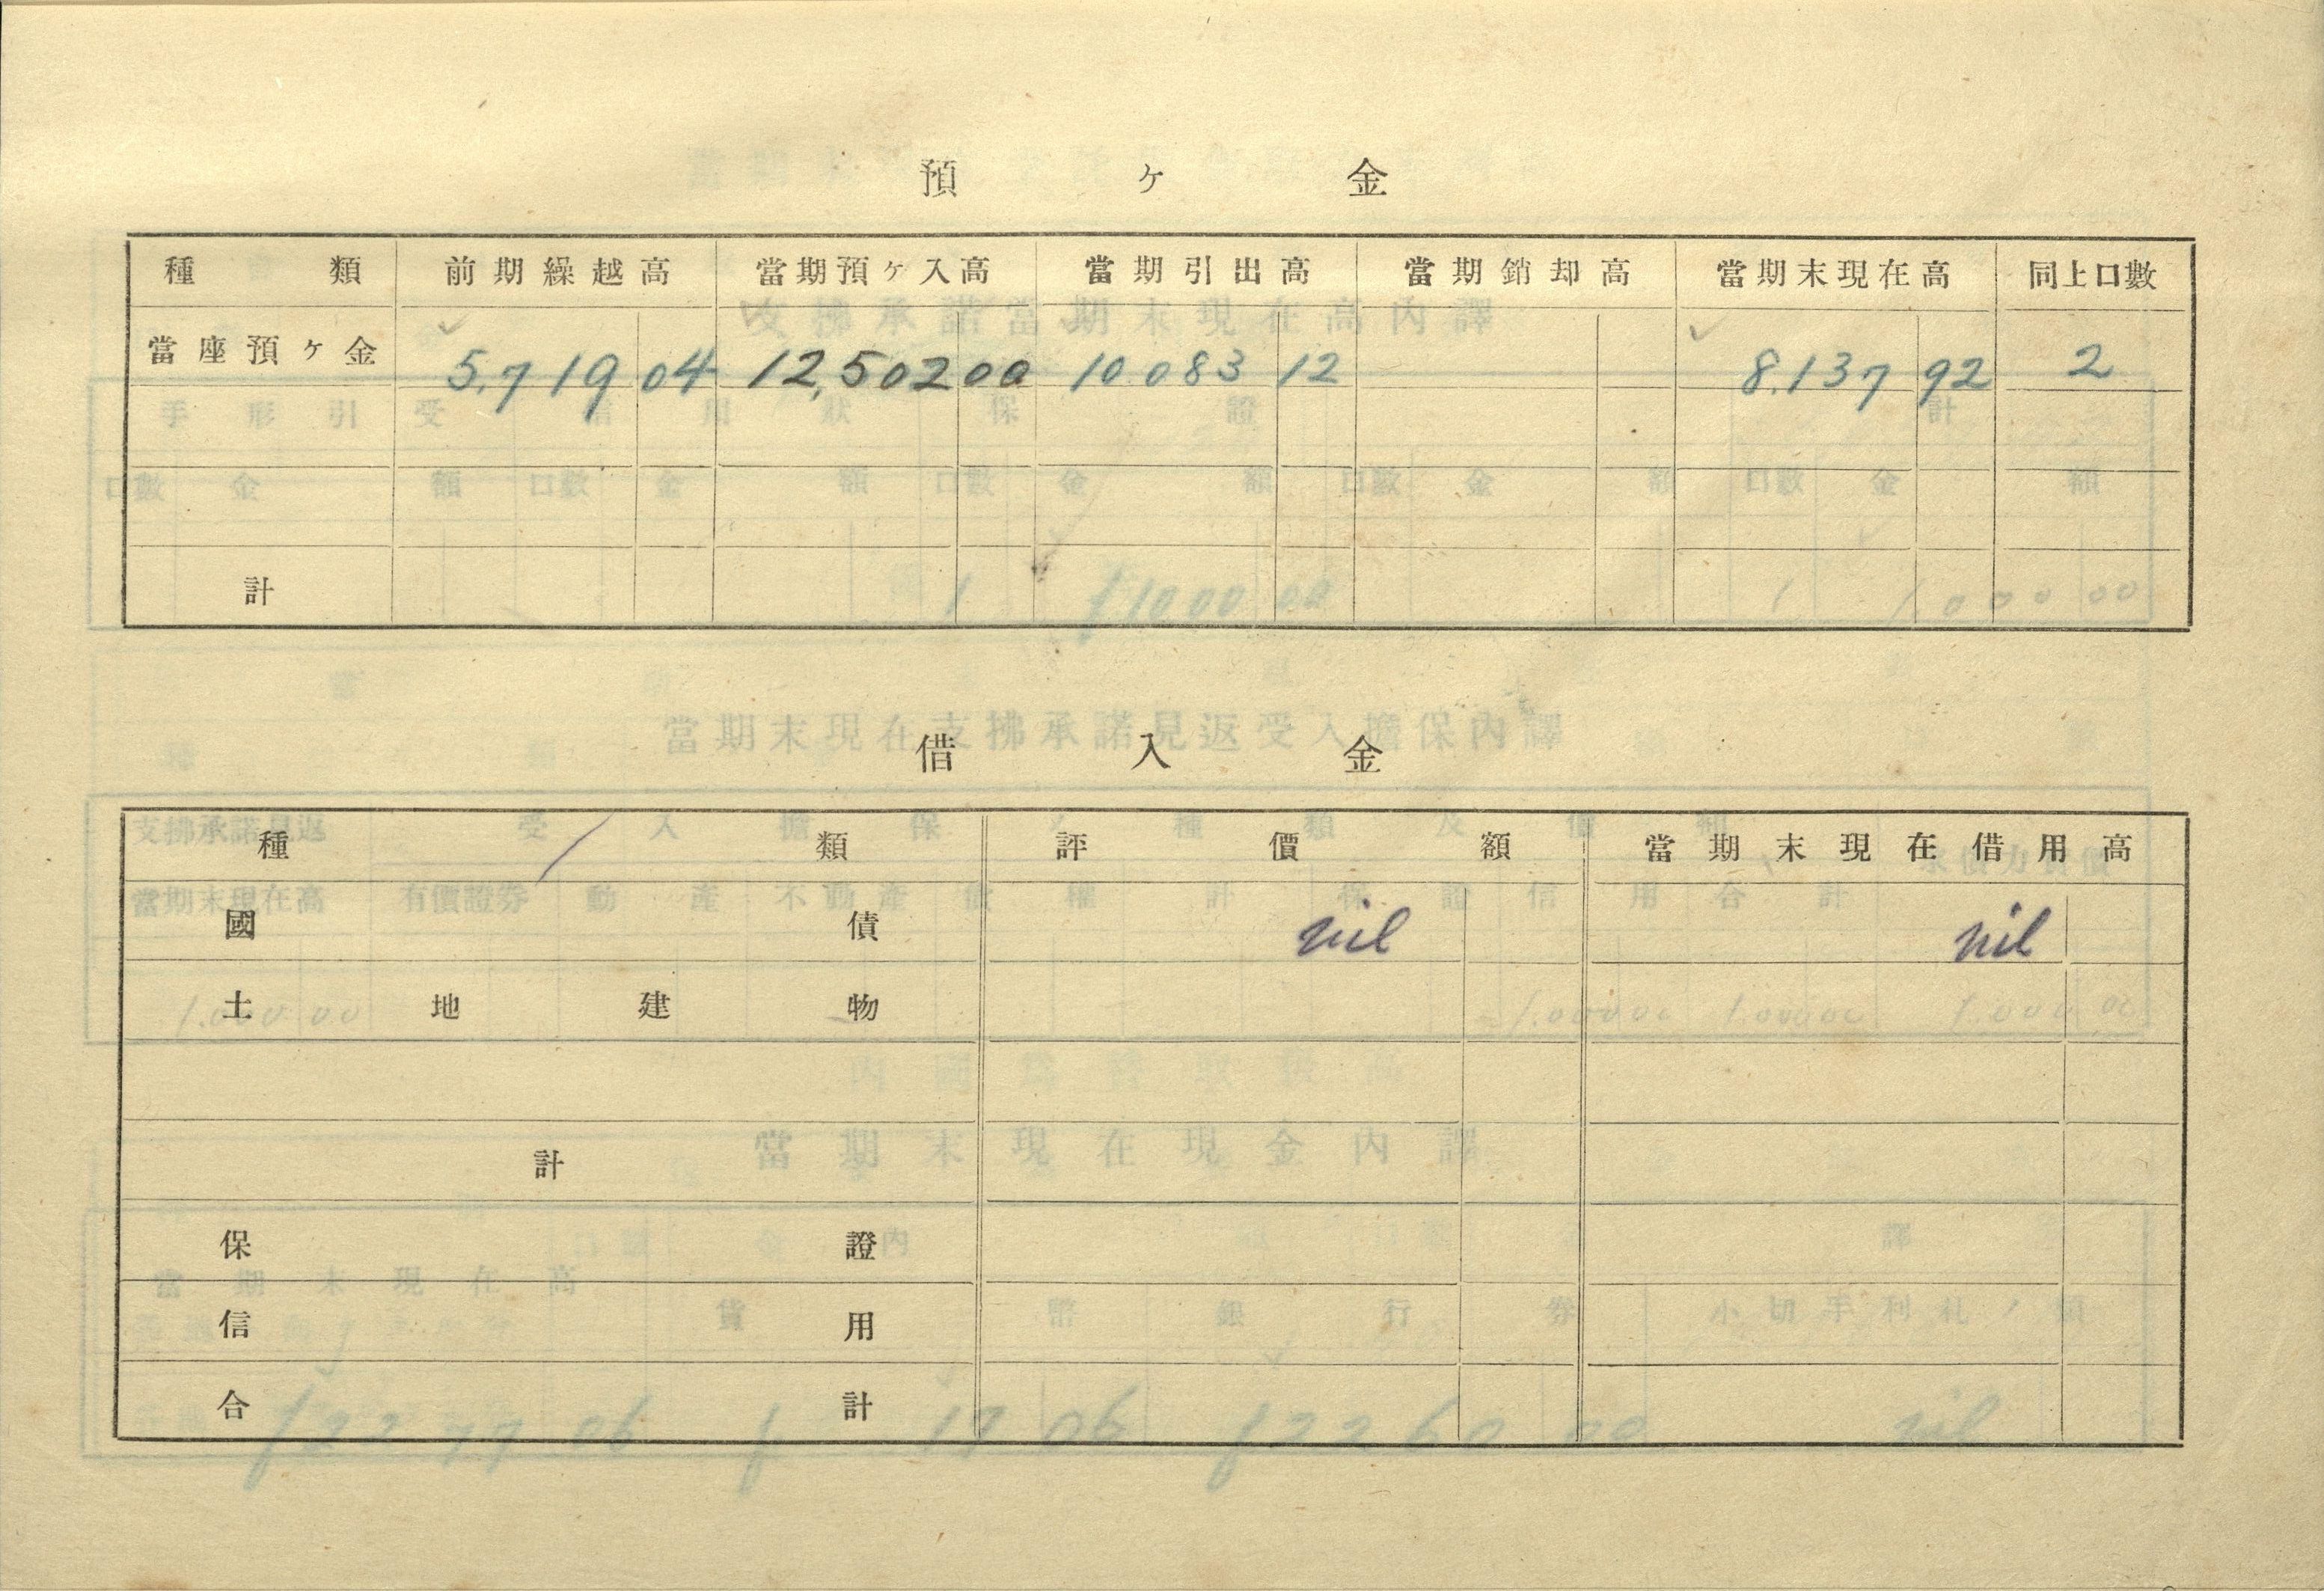 預ヶ金
種類 前期繰越高 當期預ヶ入高 當期引出高 當期銷却高 當期末現在高 同上口數
當座預ヶ金 5,719 04 12,502 00 10.083 12 8.137 92 2
計
借入金
種類 評價額 當期末現在借用高
國債 nil nil
土地建物
計
保證
信用
合計